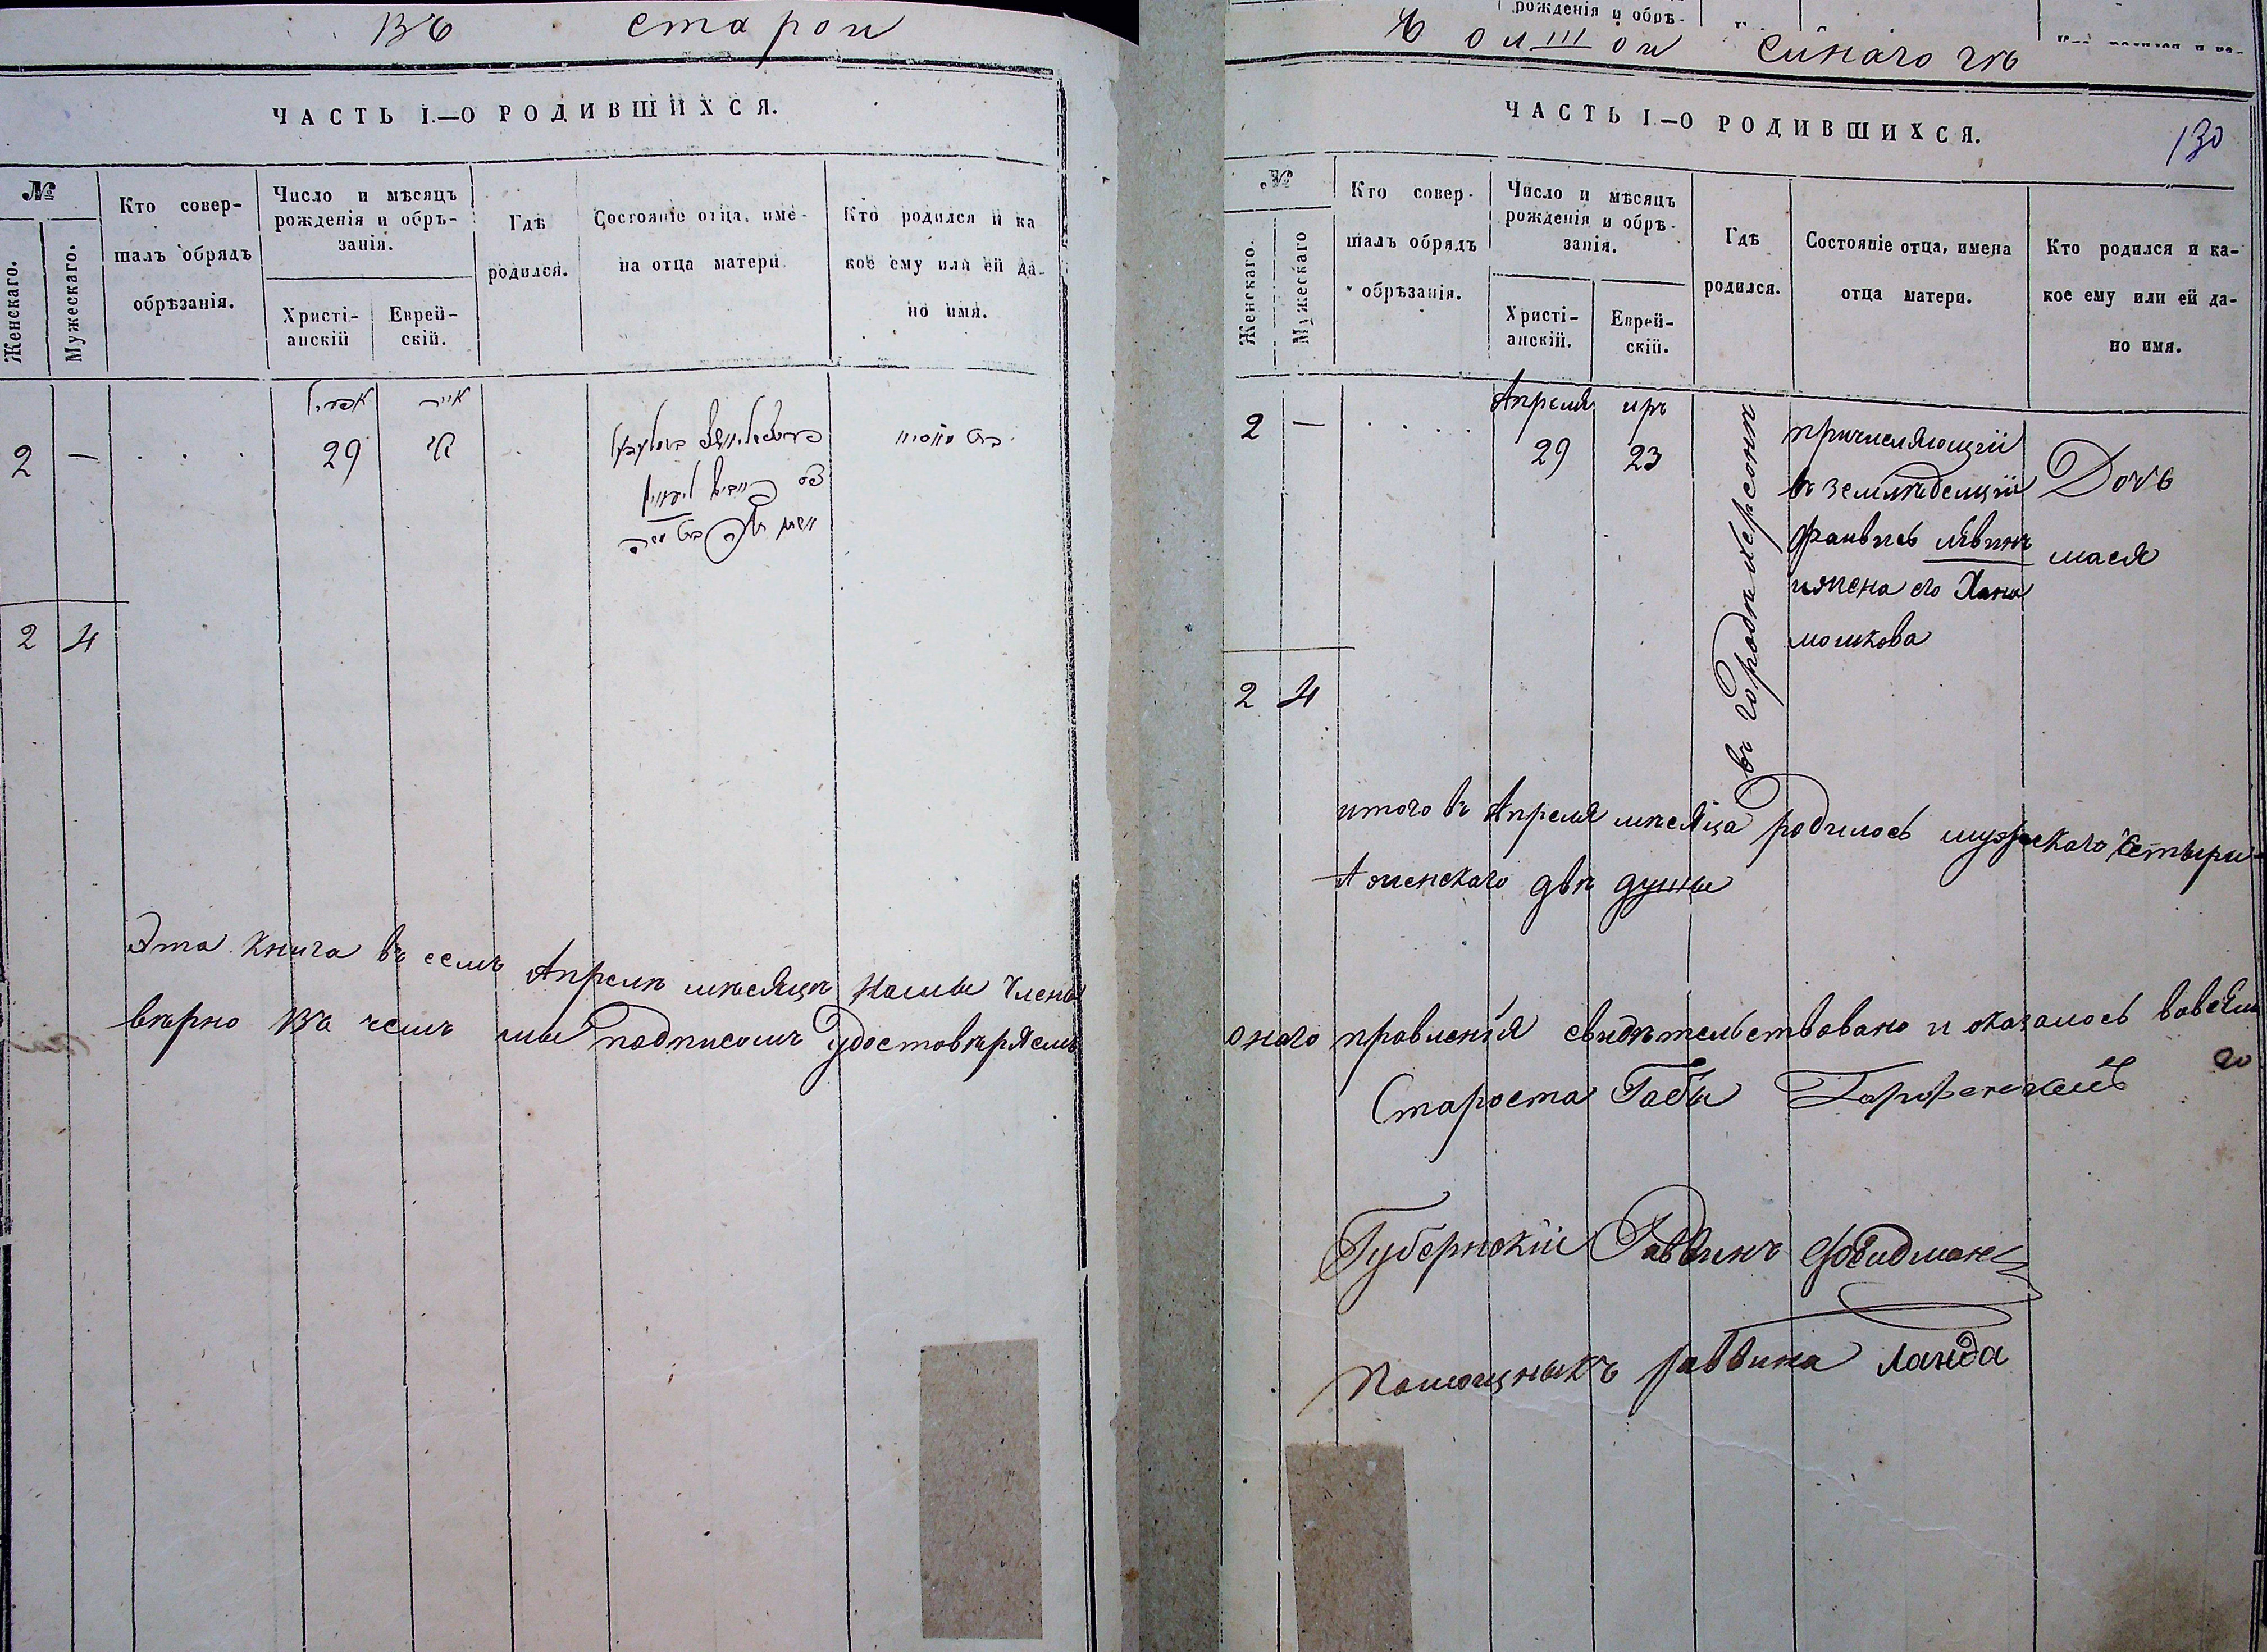 въ старой
ЧАСТЬ I.—О РОДИВШИХСЯ.
№
Женскаго.
Мужескаго.
Кто совер-
шалъ обрядъ
обрѣзанія.
Число и мѣсяцъ
рожденія и обрѣ-
занія.
Христі-
анскій
Еврей-
скій.
Гдѣ
родился.
Состояніе отца, име-
на отца матери
Кто родился и ка
кое ему или ей да-
но имя.
אפריל
אייר
2 —
29
2 4
Эта книга въ семъ Апрелѣ мѣсяцѣ нами Члены
вѣрно въ чемъ мы подписомъ удостовѣряемъ
рожденія и обрѣ-
большой синагогѣ
ЧАСТЬ I.—О РОДИВШИХСЯ.
130
№
Женскаго.
Мужескаго
Кто совер-
шалъ обрядъ
обрѣзанія.
Число и мѣсяцъ
рожденія и обрѣ-
занія.
Христі-
анскій.
Еврей-
скій.
Гдѣ
родился.
Состояніе отца, имена
отца матери.
Кто родился и ка-
кое ему или ей да-
но имя.
Апреля иръ
2 — 29 23
въ городѣ херсонѣ
причисляющій
въ земледелцій
фаивись левинъ
и жена его Хана
мошкова
Дочь
мася
2 4
итого въ Апреля мѣсяца родилось мужескаго Четыри
А женскаго двѣ душы
онаго правленія свидѣтельствовано и оказалось вовсем
го
Староста Габы
Губернскій Раввинъ
Помощныкъ раввина Ланда